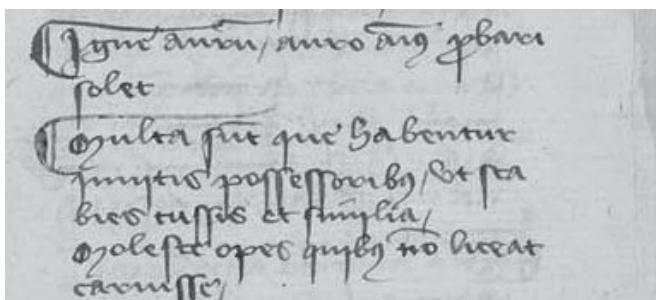 ¶ Igne aurū / auro aīꝰ ꝓbari
solet
¶ Multa sūt que habentur
inuitis possessoribꝰ / vt sca
bies tussis et similia /
Moleste opes quibꝰ nō liceat
caruisse /